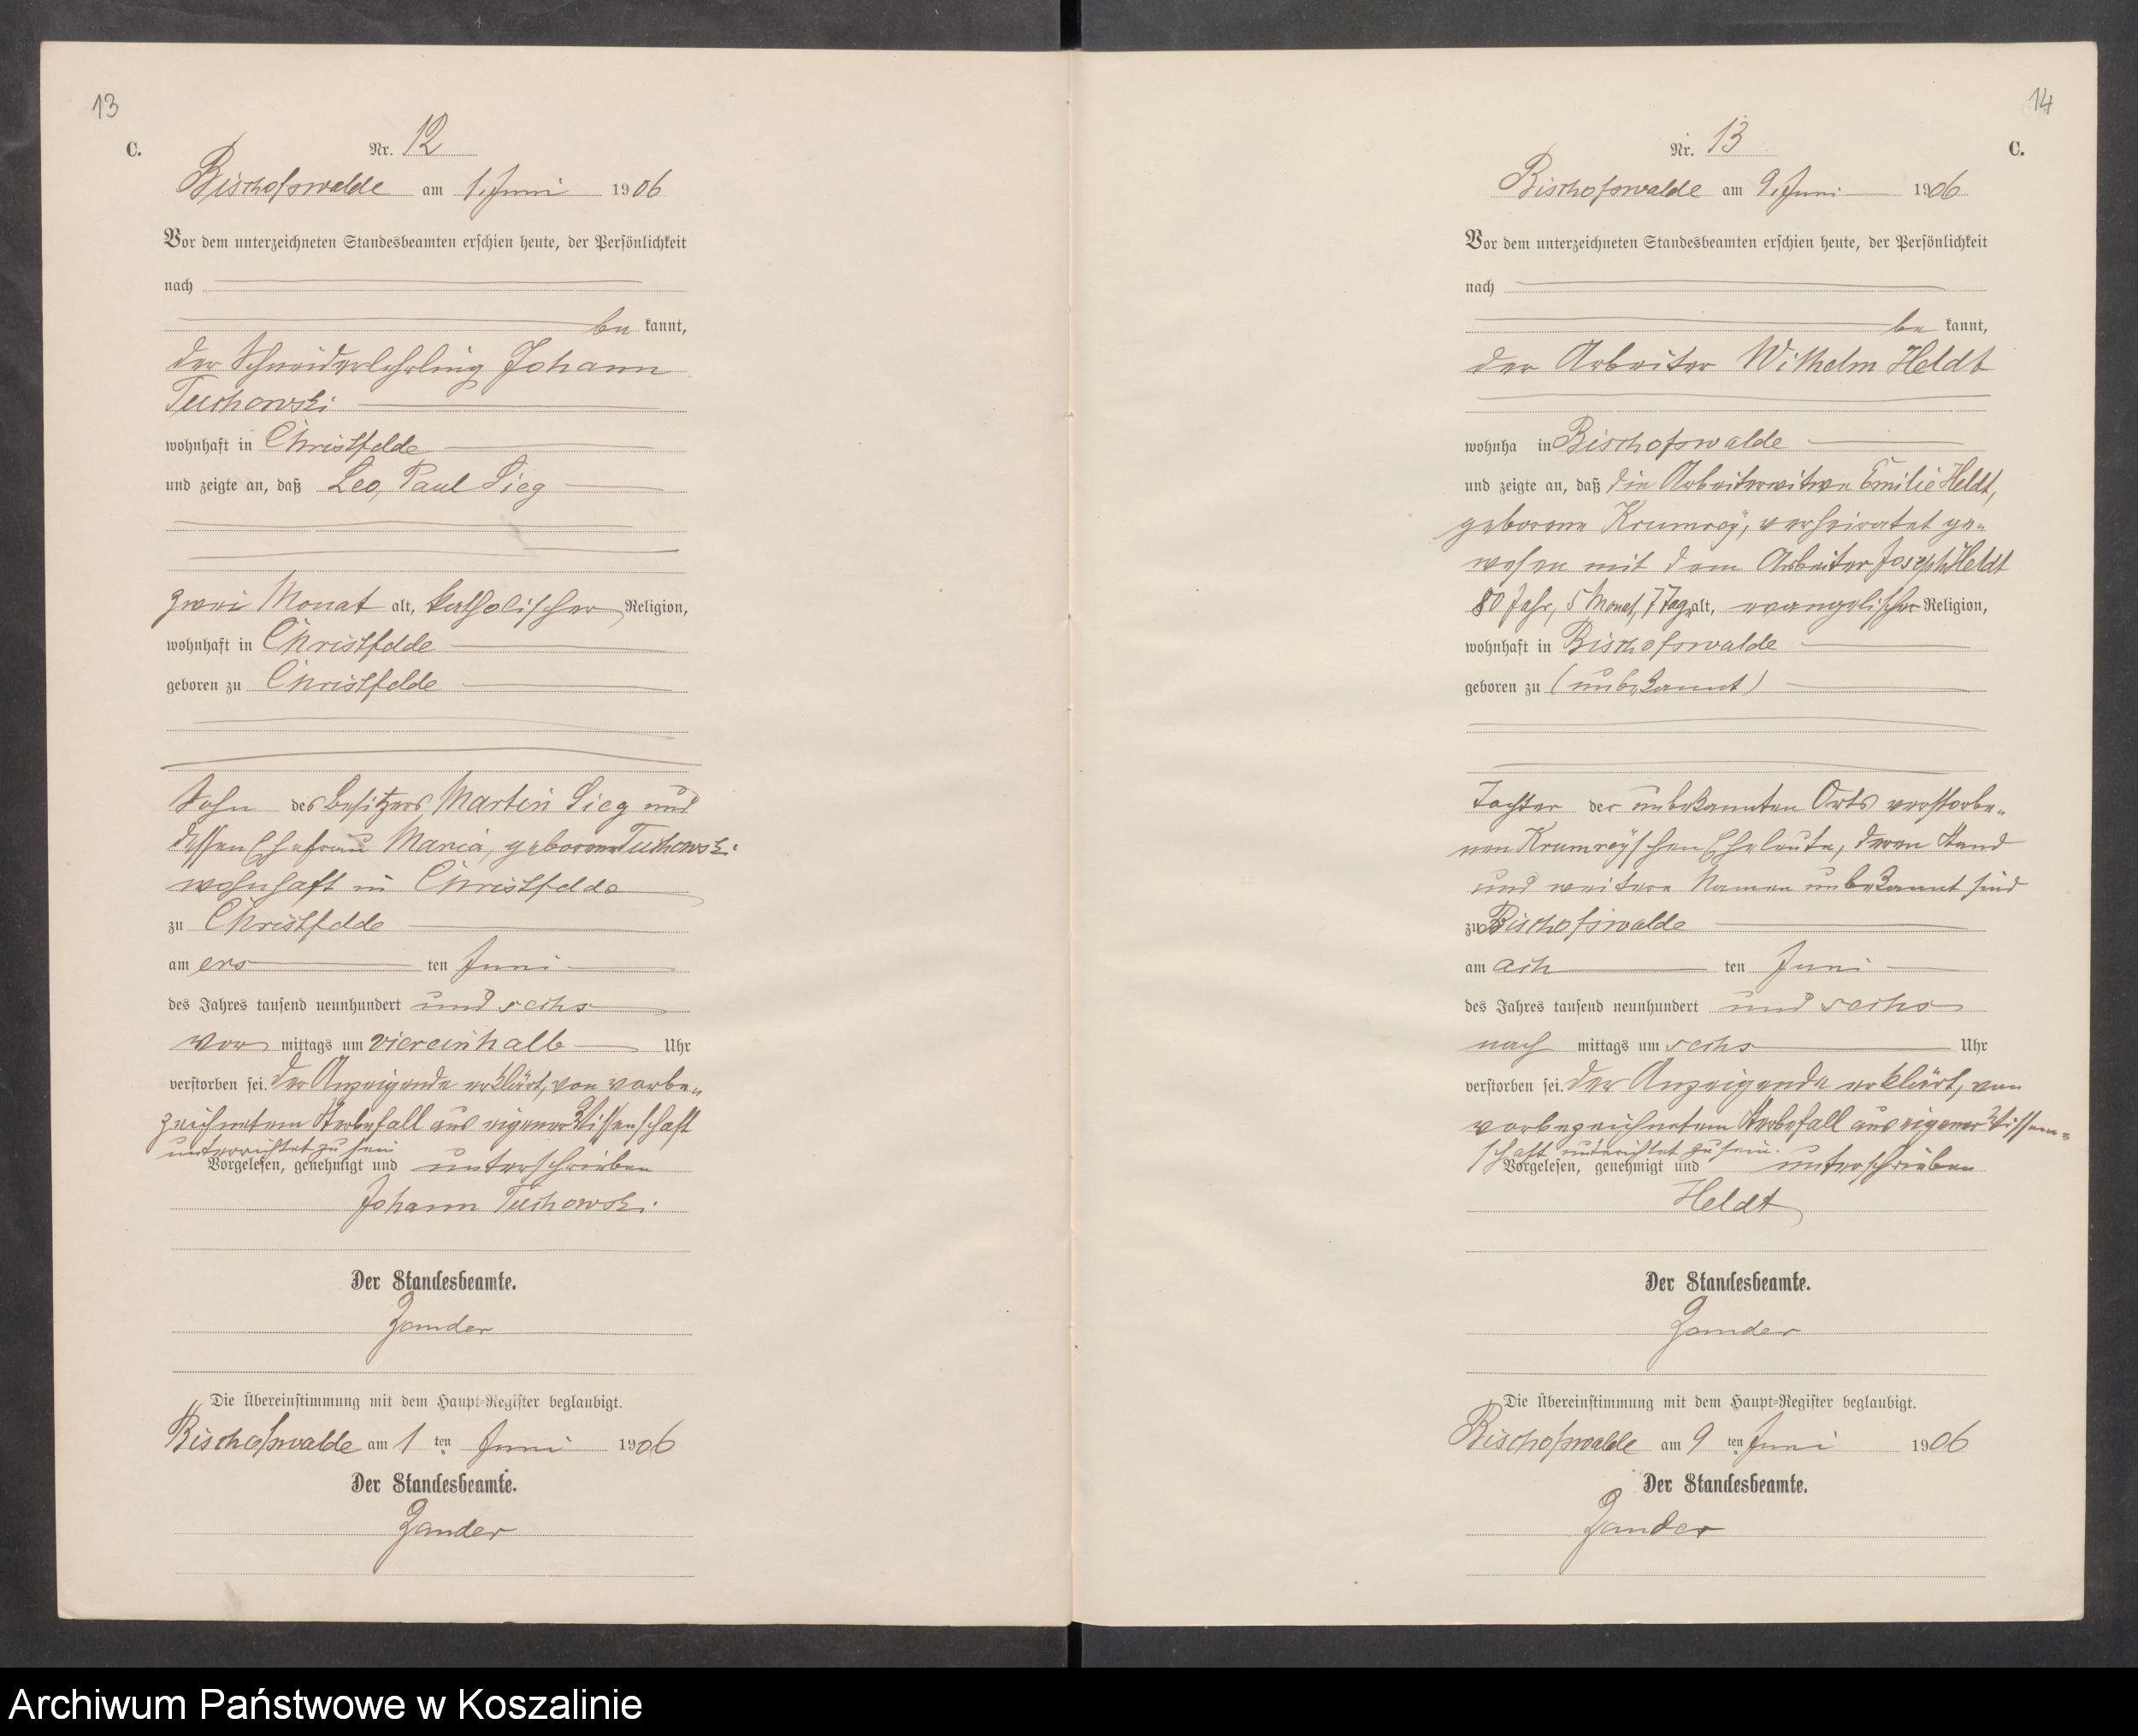 13
C.
Nr. 12
Bischofswalde am 1. Juni 1906
Vor dem unterzeichneten Standesbeamten erschien heute, der Persönlichkeit
nach
be kannt,
der Schneiderlehrling Johann
Tuchowski
wohnhaft in Christfelde
und zeigte an, daß Leo, Paul Sieg
zwei Monat alt, katholischer Religion,
wohnhaft in Christfelde
geboren zu Christfelde
Sohn des Besitzers Martin Sieg und
dessen Ehefrau Maria, geborene Tuchowski
wohnhaft in Christfelde
zu Christfelde
am ers ten Juni
des Jahres tausend neunhundert und sechs
vor mittags um viereinhalb Uhr
verstorben sei. Der Anzeigende erklärt, von vorbe-
zeichnetem Sterbefall aus eigener Wissenschaft
unterrichtet zu sein
Vorgelesen, genehmigt und unterschrieben
Johann Tuchowski.
Der Standesbeamte.
Zander
Die Übereinstimmung mit dem Haupt-Register beglaubigt.
Bischofswalde am 1 ten Juni 1906
Der Standesbeamte.
Zander
14
Nr. 13
C.
Bischofswalde am 9. Juni 1906
Vor dem unterzeichneten Standesbeamten erschien heute, der Persönlichkeit
nach
be kannt,
der Arbeiter Wilhelm Heldt
wohnha in Bischofswalde
und zeigte an, daß die Arbeiterwitwe Emilie Heldt,
geborene Krumrey, verheiratet ge-
wesen mit dem Arbeiter Joseph Heldt
80 Jahr, 5 Monat, 7 Tag alt, evangelischer Religion,
wohnhaft in Bischofswalde
geboren zu (unbekannt)
Tochter der unbekannten Orts verstorbe-
nen Krumrey'schen Eheleute, deren Stand
und weitere Namen unbekannt sind
zu Bischofswalde
am ach ten Juni
des Jahres tausend neunhundert und sechs
nach mittags um sechs Uhr
verstorben sei. Der Anzeigende erklärt, von
vorbezeichnetem Sterbefall aus eigener Wissen-
schaft unterichtet zu sein.
Vorgelesen, genehmigt und unterschrieben
Heldt
Der Standesbeamte.
Zander
Die Übereinstimmung mit dem Haupt-Register beglaubigt.
Bischofswalde am 9 ten Juni 1906
Der Standesbeamte.
Zander
Archiwum Państwowe w Koszalinie